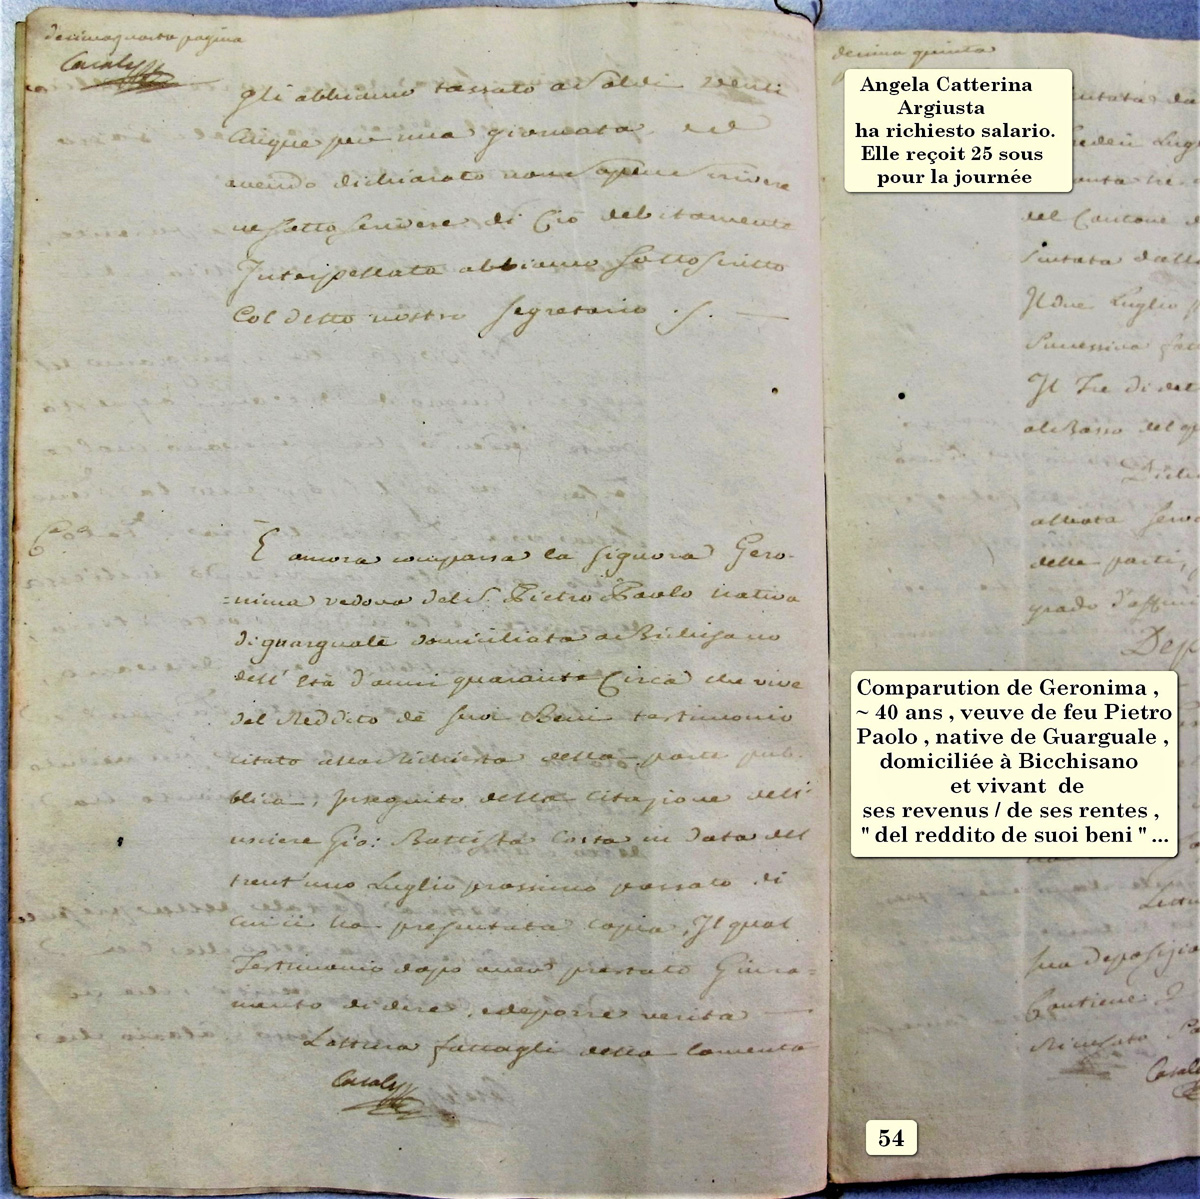 decimaquarta pagina
Casaly
gli abbiamo tassato a Soldi venti
Cinque per una giornata, ed
avendo dichiarato non sapere scrivere
ne sotto scrivere di Ciò debitamente
Interpellata abbiamo sottoscritto
Col detto nostro segretario
È ancora comparsa la signora Gero-
=nima vedova del S. Pietro Paolo nativa
di guarguale domiciliata a Bichisano
dell' Età d'anni quaranta Circa che vive
del Reddito de suoi Beni testimonio
citato alla Richiesta della parte pub-
blica, Inseguito della Citazione dell'
usciere Gio: Battista Costa in data del
trent'uno Luglio prossimo passato di
cui ci ha presentata copia, Il qual
Testimonio dopo aver prestato Giura=
mento di dire, e deporre verità
Lettura fattagli della lamenta
Casaly
decima quinta
del Cantone
Il due Luglio
Successiva
Il Tre di det
al Basso del
delle parti,
grado d'affin
Dep
sua deposizio
Contiene
Casaly
Angela Catterina
Argiusta
ha richiesto salario.
Elle reçoit 25 sous
pour la journée
Comparution de Geronima ,
~ 40 ans , veuve de feu Pietro
Paolo , native de Guarguale ,
domiciliée à Bicchisano
et vivant de
ses revenus / de ses rentes ,
" del reddito de suoi beni " ...
54